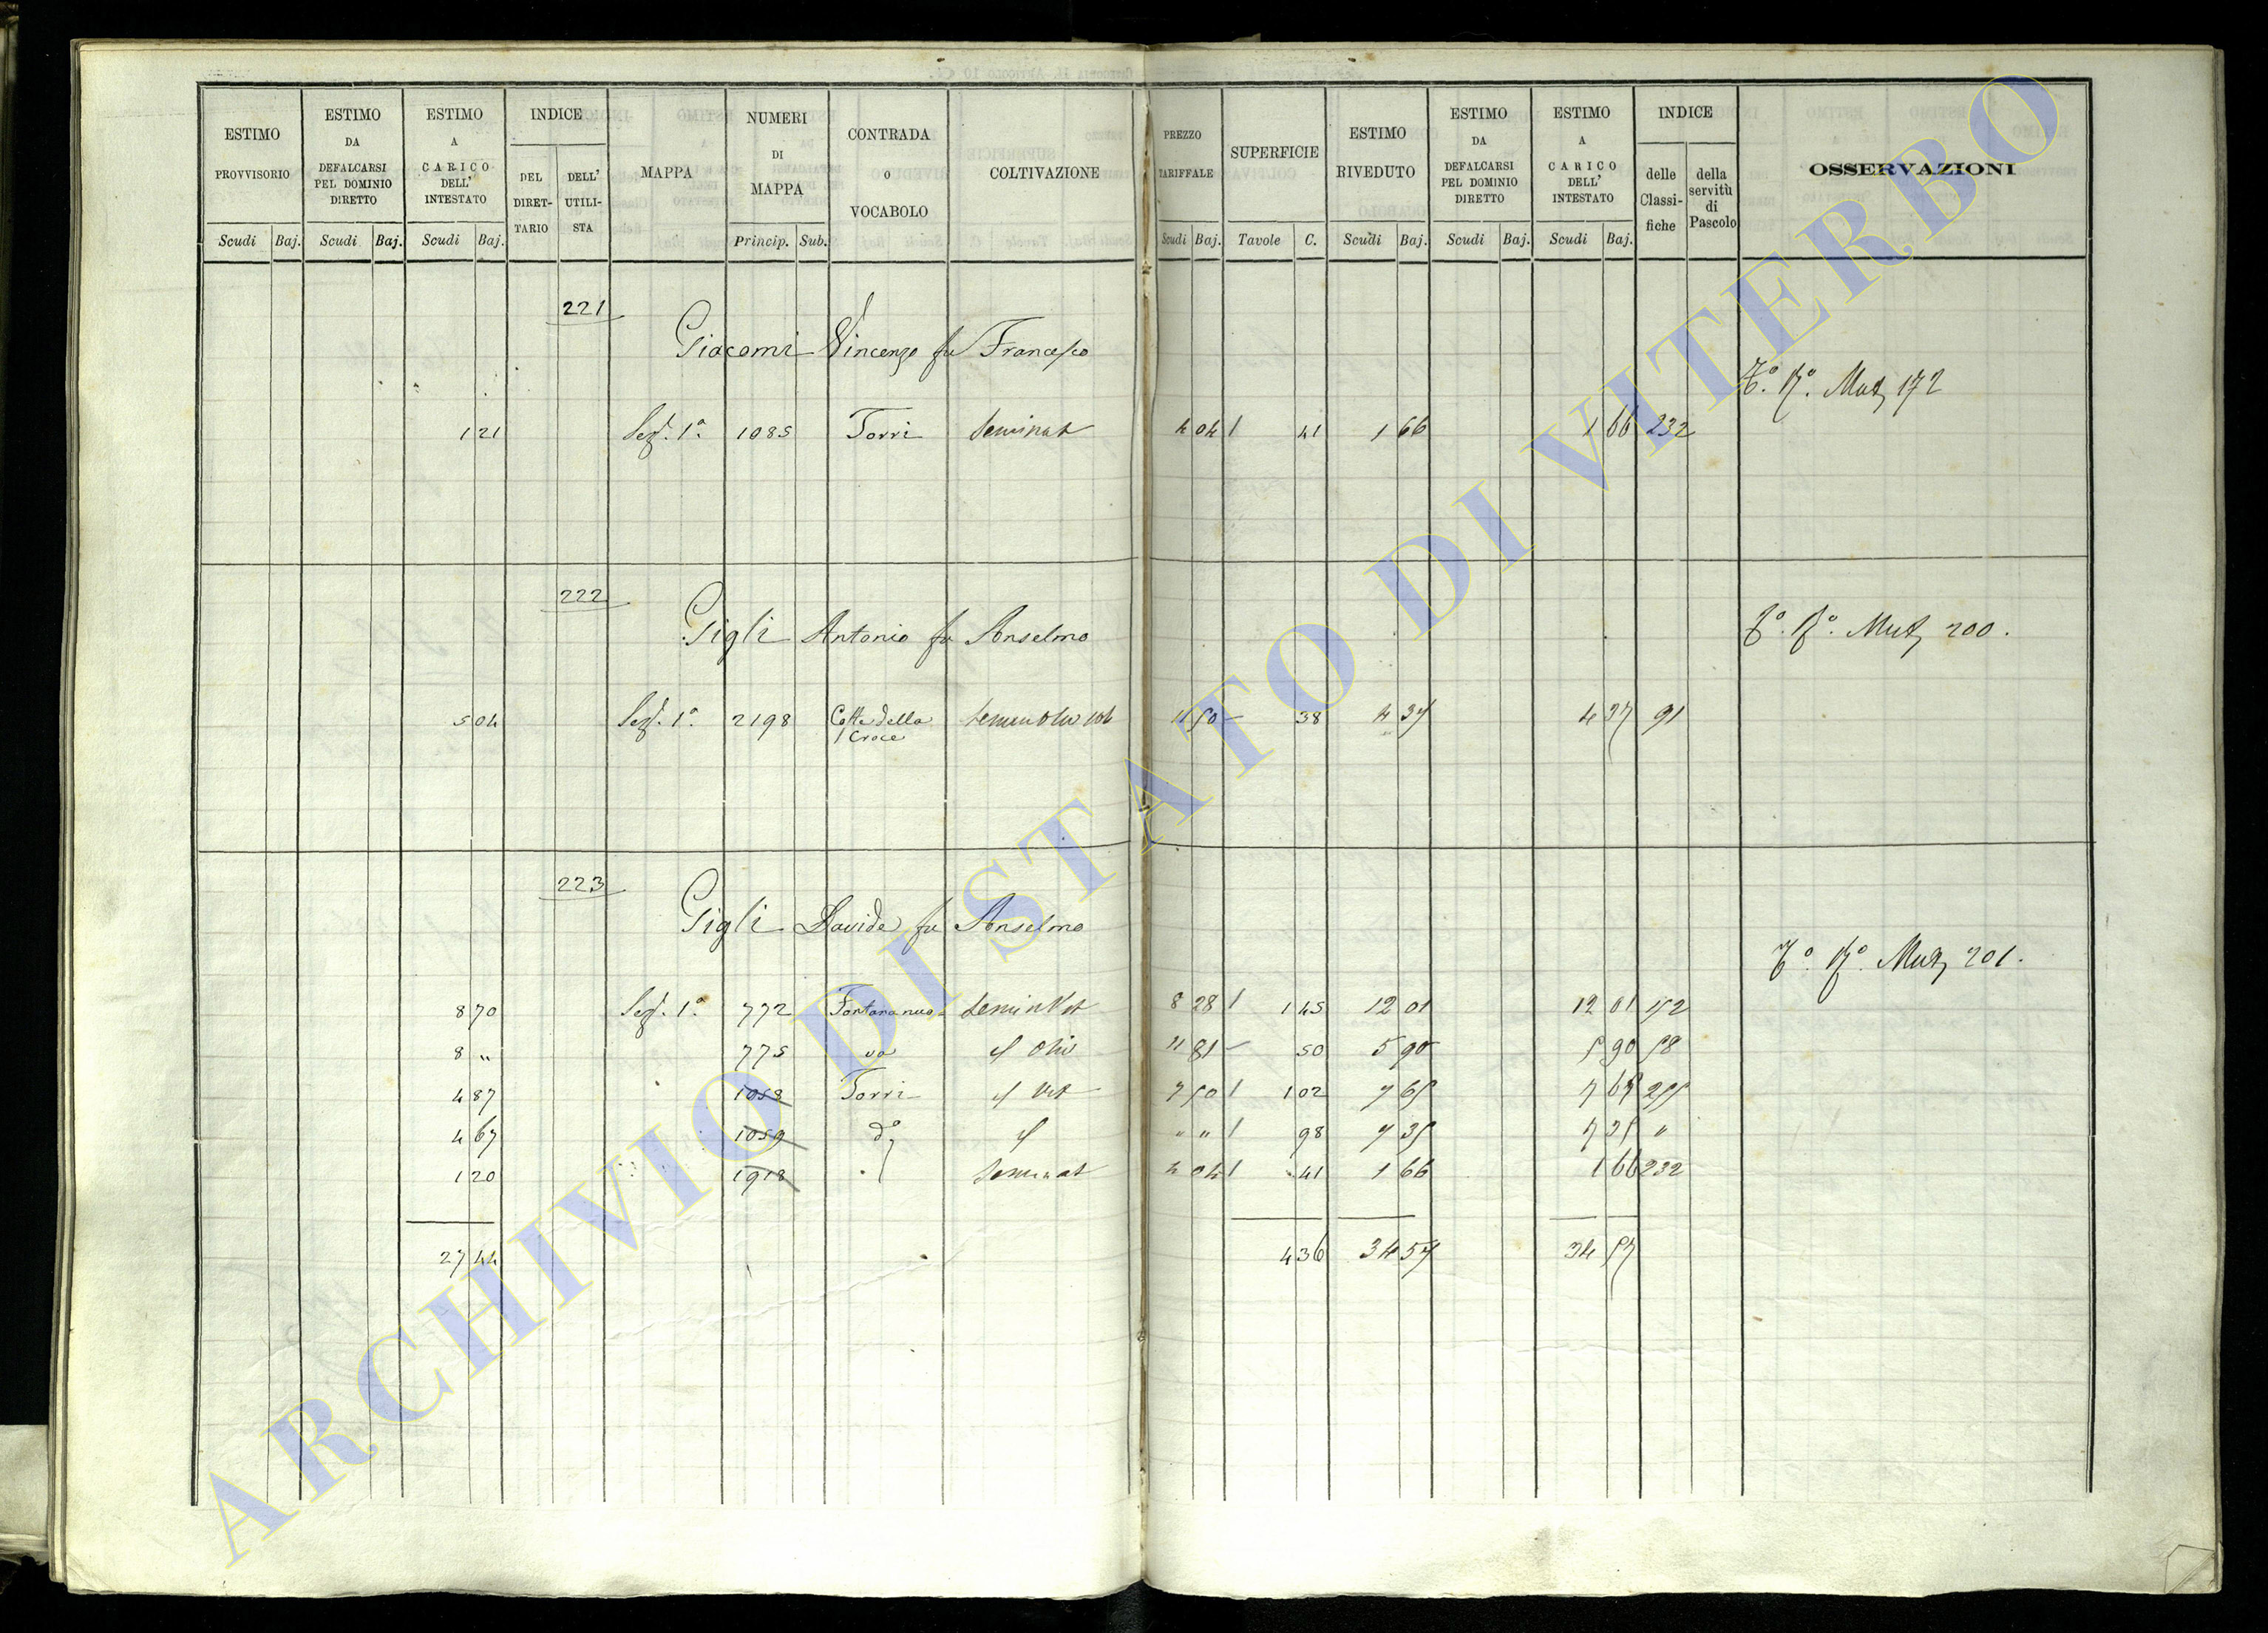 ESTIMO PROVVISORIO | ESTIMO DA DEFALCARSI PEL DOMINIO DIRETTO | ESTIMO A CARICO DELL' INTESTATO | INDICE DEL DIRET-TARIO | DELL' UTILI-STA | MAPPA | NUMERI DI MAPPA | CONTRADA O VOCABOLO | COLTIVAZIONE | PREZZO TARIFFALE | SUPERFICIE | ESTIMO RIVEDUTO | ESTIMO DA DEFALCARSI PEL DOMINIO DIRETTO | ESTIMO A CARICO DELL' INTESTATO | INDICE delle Classi-fiche | della servitù di Pascolo | OSSERVAZIONI
Scudi Baj. Scudi Baj. Scudi Baj. Princip. Sub. Scudi Baj. Tavole C. Scudi Baj. Scudi Baj. Scudi Baj.
221
Giacomi Vincenzo fu Francesco
Mut 172
1 21 Sez. 1a. 1085 Torri Seminat 4 04 1 41 1 66 1 66 232
222
Gigli Antonio fu Anselmo
Mut 200.
5 04 Sez. 1a. 2198 Cotte della Croce 11 50 — 38 4 37 4 37 91
223
Gigli Davide fu Anselmo
Mut 201.
8 70 Sez. 1a. 772 Fontananuo- 8 28 1 1 45 12 01 12 01 152
8 " 775 va Oliv 11 81 — 50 5 90 5 90 58
4 87 1058 Torri Vit 7 50 1 1 02 7 65 7 65 255
4 67 1059 do " " 1 98 7 35 7 35 "
1 20 1918 Seminat 4 04 1 41 1 66 1 66 232
27 44 4 36 34 57 34 57
ARCHIVIO DI STATO DI VITERBO